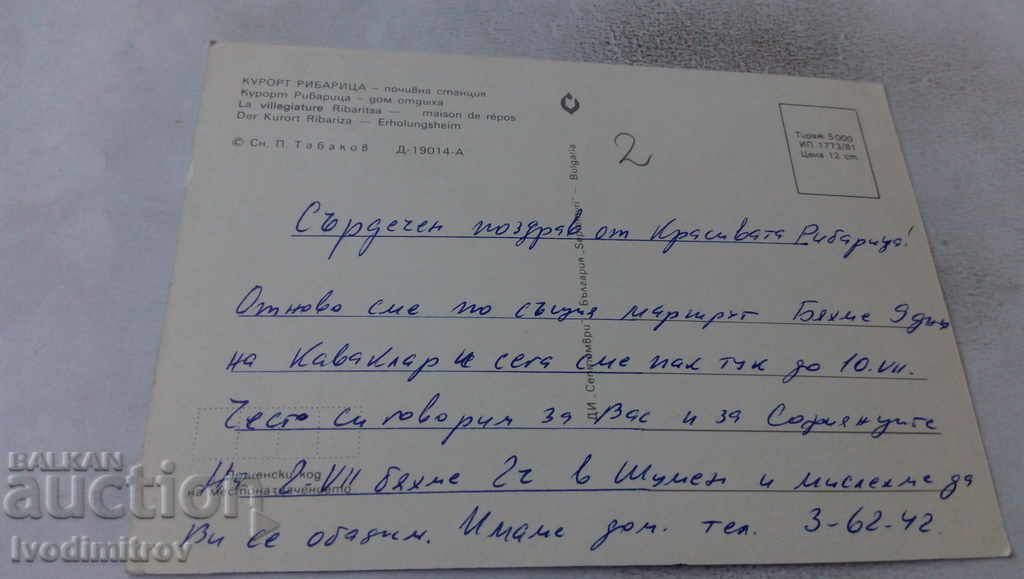 КУРОРТ РИБАРИЦА – почивна станция
Курорт Рибарица – дом отдыха
La villegiature Ribaritsa — maison de répos
Der Kurort Ribariza — Erholungsheim
© Сн. П. Табаков Д-19014-А
2
Тираж 5000
ИП. 1773/81
Цена 12 ст.
ДИ „Септември" – България „Septemvri" – Bulgaria
Сърдечен поздрав от красивата Рибарица!
Отново сме по същия маршрут Бяхме 9 дни
на Каваклар и сега сме пак тук до 10.VII.
Често си говорим за Вас и за Софиянците
На 2-VII бяхме 2ч в Шумен и мислехме да
Ви се обадим. Имаме дом. тел. 3-62-42.
Пощенски код
на местоназначението
BALKAN
auction
Ivodimitrov